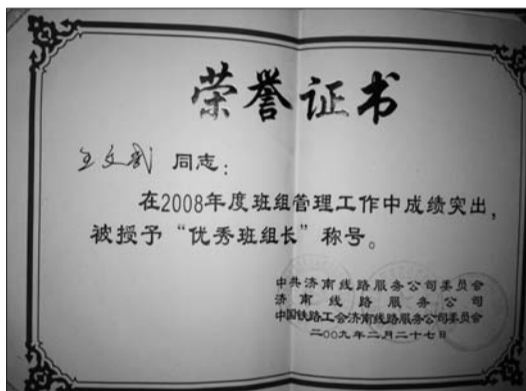 荣誉证书
王文武 同志：
在2008年度班组管理工作中成绩突出，
被授予“优秀班组长”称号。
中共济南线路服务公司委员会
济南线路服务公司
中国铁路工会济南线路服务公司委员会
二〇〇九年二月二十七日